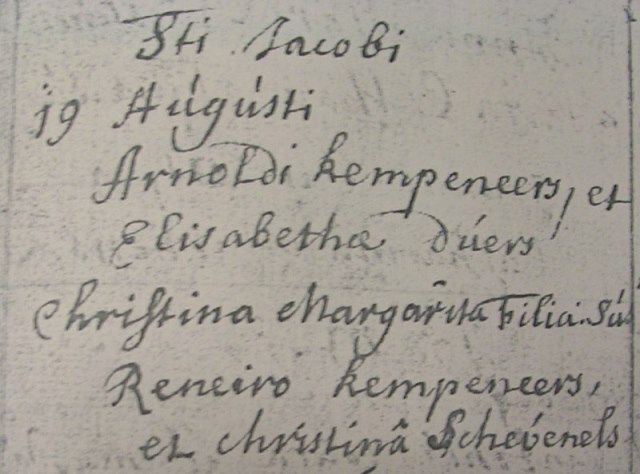 Sti Jacobi
19 Aúgústi
Arnoldi kempeneers, et
Elisabethæ dúers
Christina Margarita Filia. Sú
Reneiro kempeneers,
et christinâ Schevenels